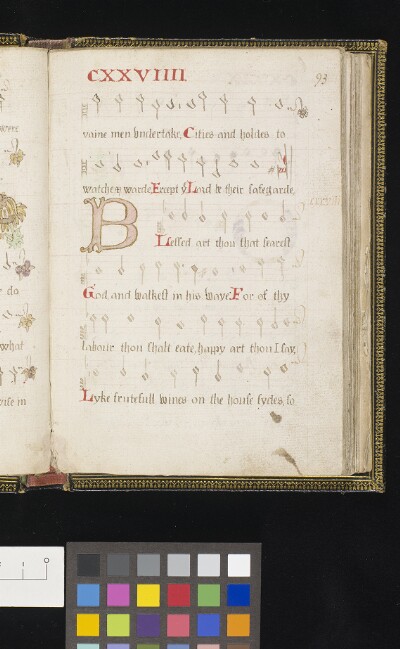 were
do
what
wise in
CXXVIIII
93
vaine men vndertake, Cities and holdes to
watche & warde Except ye Lord be their safegarde
B
Lessed art thou that fearest
God and walkest in his waye For of thy
labour thou shalt eate, happy art thou I say,
Lyke frutefull wines on the house sydes, so